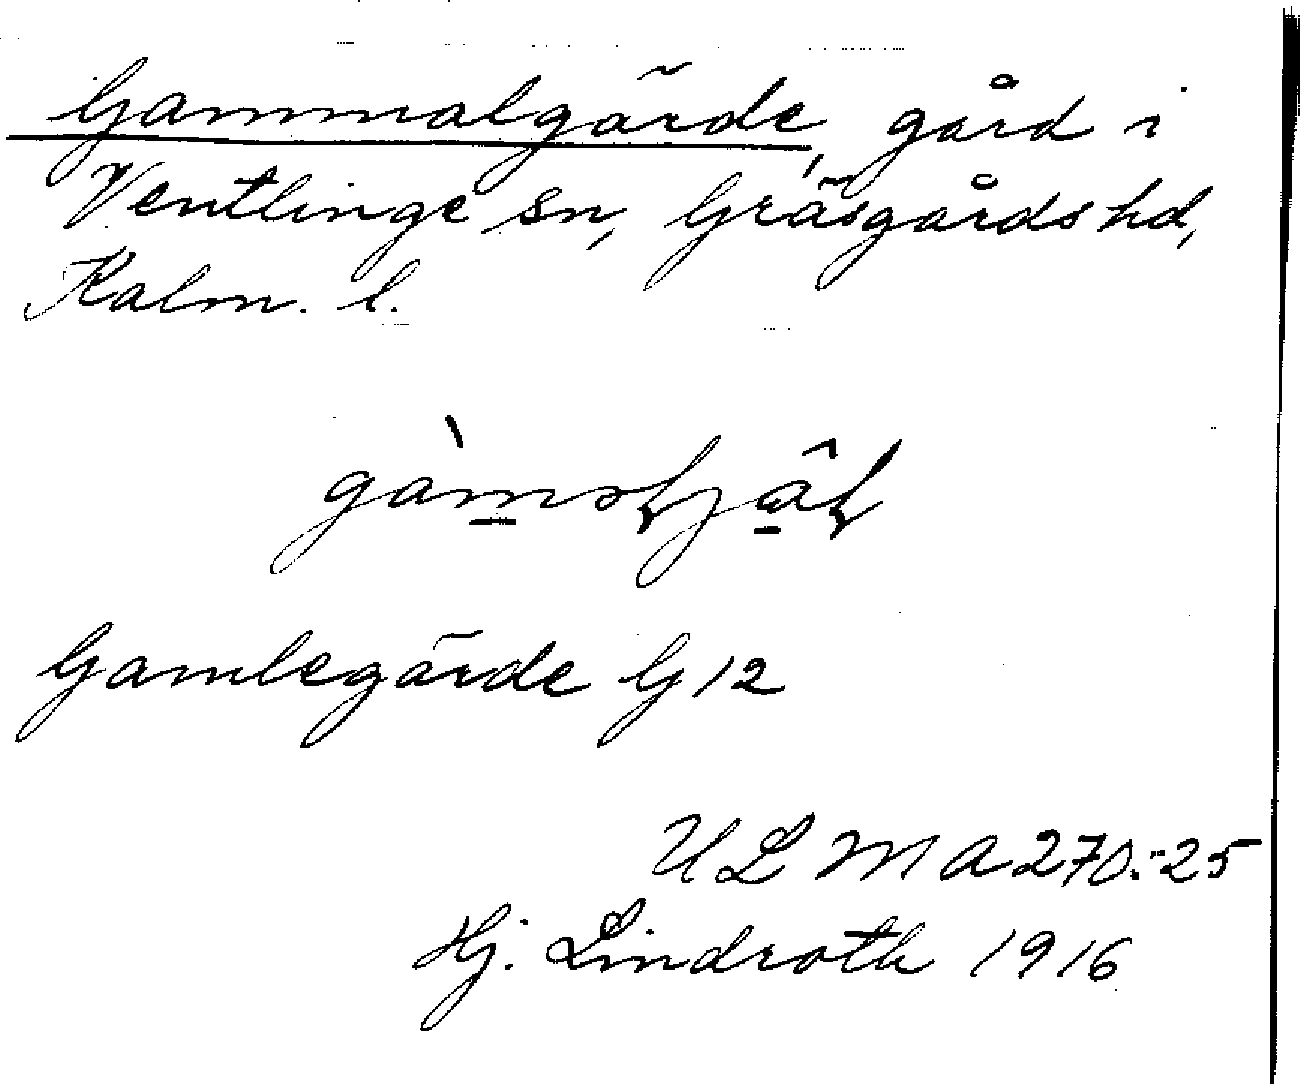 Gammalgärde, gård i
Ventlinge sn, Gräsgårds hd,
Kalm. l.
Gamlegärde G 12
ULMA 270:25
Hj. Lindroth 1916